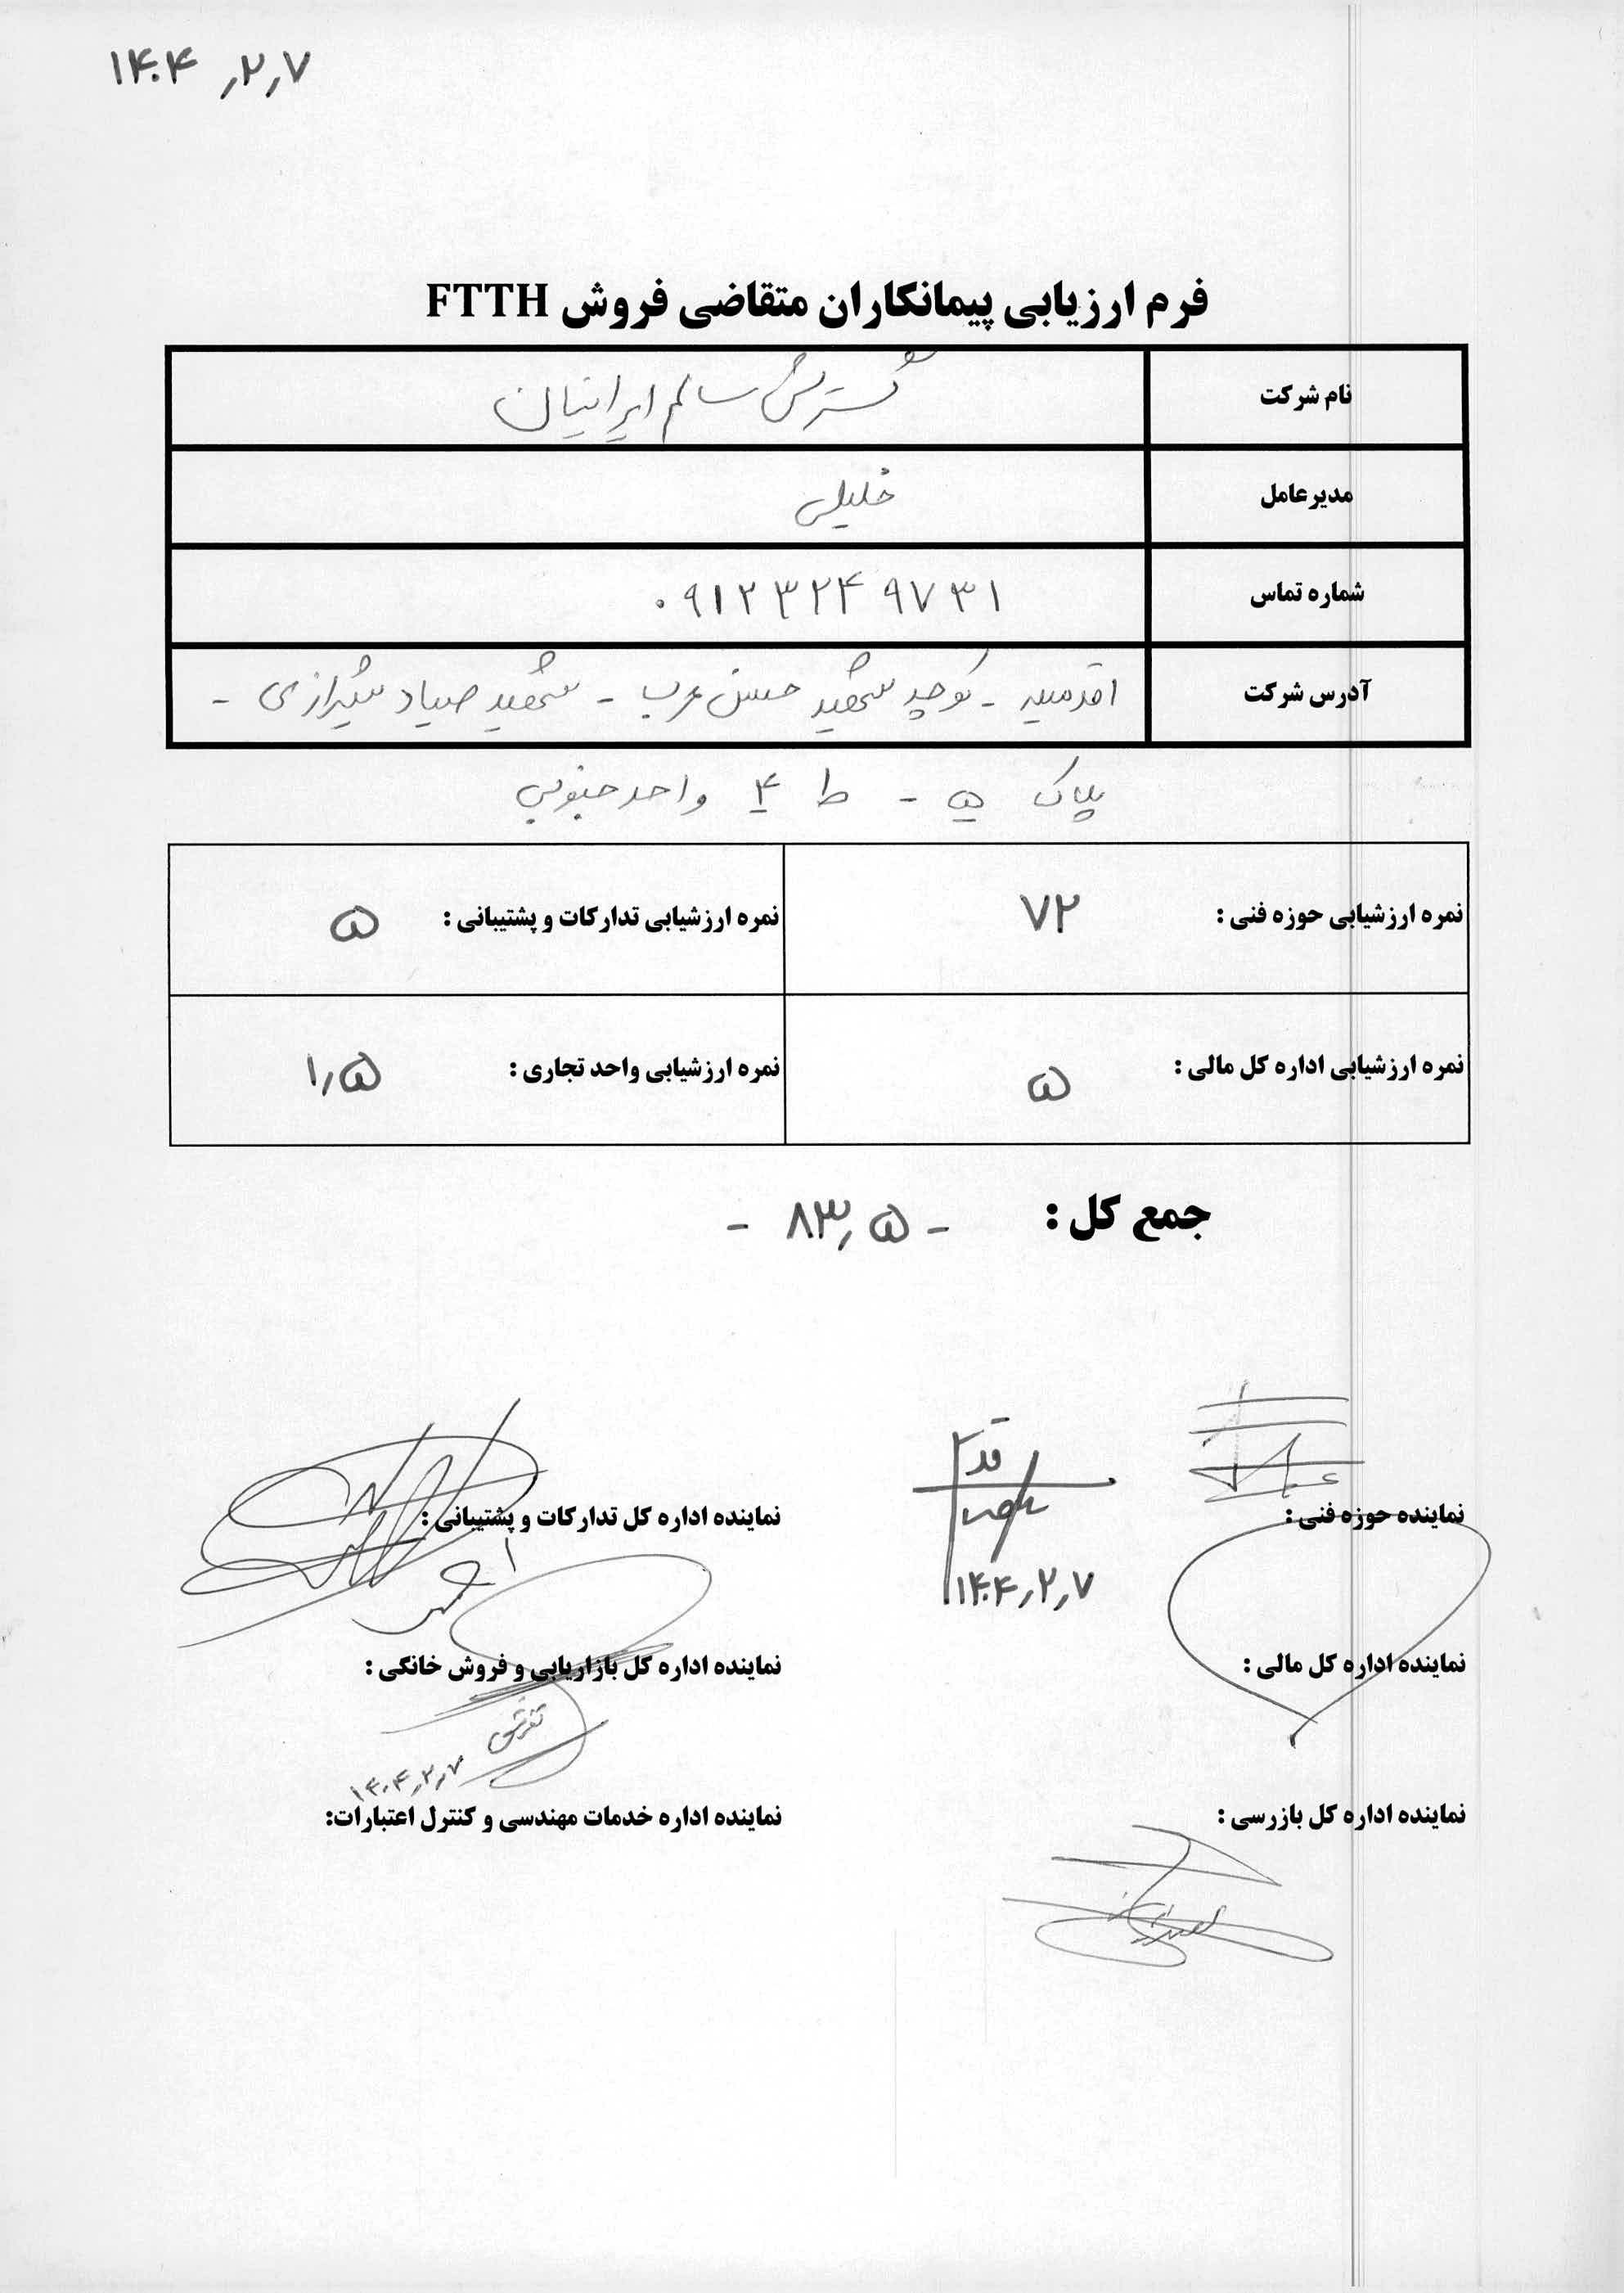 ۱۴۰۴٫۲٫۷
فرم ارزیابی پیمانکاران متقاضی فروش FTTH
نام شرکت گسترش سالم ایرانیان
مدیرعامل خلیلی
شماره تماس ۰۹۱۲۳۲۴۹۷۳۱
آدرس شرکت اقدسیه - کوچه شهید حسن عرب - شهید صیاد شیرازی -
پلاک ۵ - ط ۴ واحد جنوبی
نمره ارزشیابی حوزه فنی : ۷۲ نمره ارزشیابی تدارکات و پشتیبانی : ۵
نمره ارزشیابی اداره کل مالی : ۵ نمره ارزشیابی واحد تجاری : ۱٫۵
جمع کل : - ۸۳٫۵ -
نماینده حوزه فنی : نماینده اداره کل تدارکات و پشتیبانی :
۱۴۰۴٫۲٫۷
نماینده اداره کل مالی : نماینده اداره کل بازاریابی و فروش خانگی :
تفرشی
۱۴۰۴٫۲٫۷
نماینده اداره کل بازرسی : نماینده اداره خدمات مهندسی و کنترل اعتبارات: